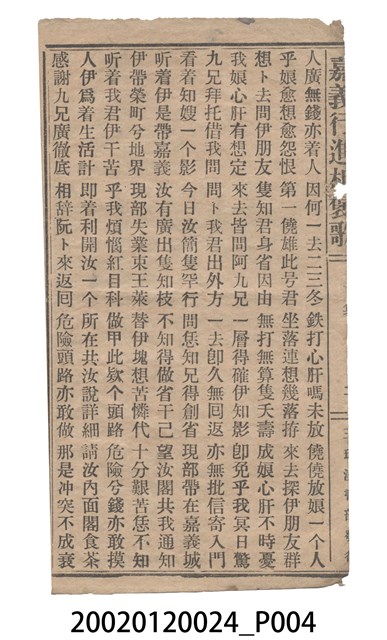 嘉義行進相褒歌
人廣無錢亦着人 因何一去二三冬 鉄打心肝嗎未放 僥僥放娘一个人
乎娘愈想愈怨恨 第一僥雄此号君 坐落連想幾落拵 來去探伊朋友群
想卜去問伊朋友 隻知君身省因由 無打無算隻夭壽 成娘心肝不時憂
我娘心肝有想定 來去皆問阿九兄 一層得確伊知影 卽免乎我冥日驚
九兄拜托借我問 問卜我君出外方 一去卽久無囘返 亦無批信寄入門
看着知嫂一个影 今日汝簡隻罕行 問恁知兄得創省 現部帶在嘉義城
听着伊是帶嘉義 汝有廣出隻知枝 不知得做省干己 望汝閣共我通知
伊帶榮町兮地界 現部失業東王萊 替伊塊想苦憐代 十分艱苦恁不知
听着我君伊干苦 乎我煩惱紅目科 做甲此欵个頭路 危險兮錢亦敢摸
人伊爲着生活計 卽着利開汝一个 所在共汝說詳細 請汝內面閣食茶
感謝九兄廣徹底 相辞阮卜來返囘 危險頭路亦敢做 那是冲突不成衰
20020120024_P004